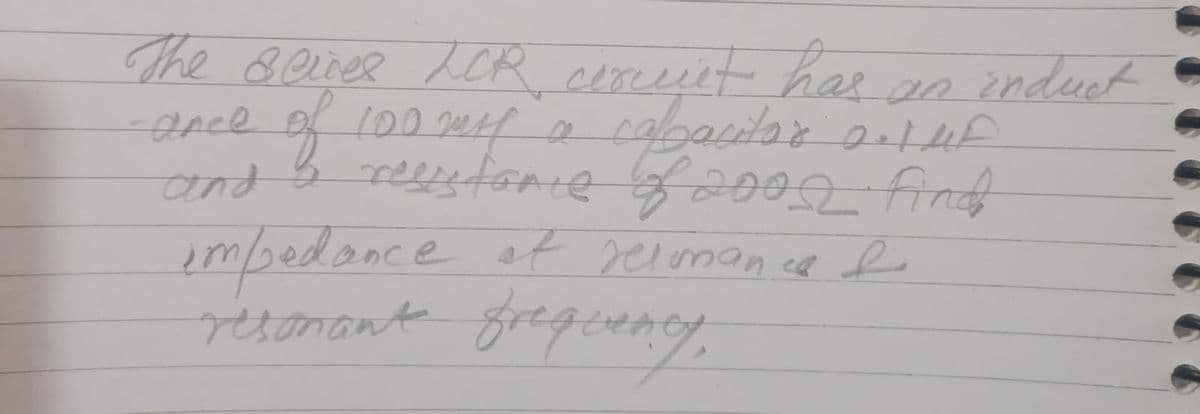 The series LCR circuit has an induct
-ance of 100 mH a capacitor 0.1 μF
and a resistance of 200Ω find
impedance at resonance &
resonant frequency.